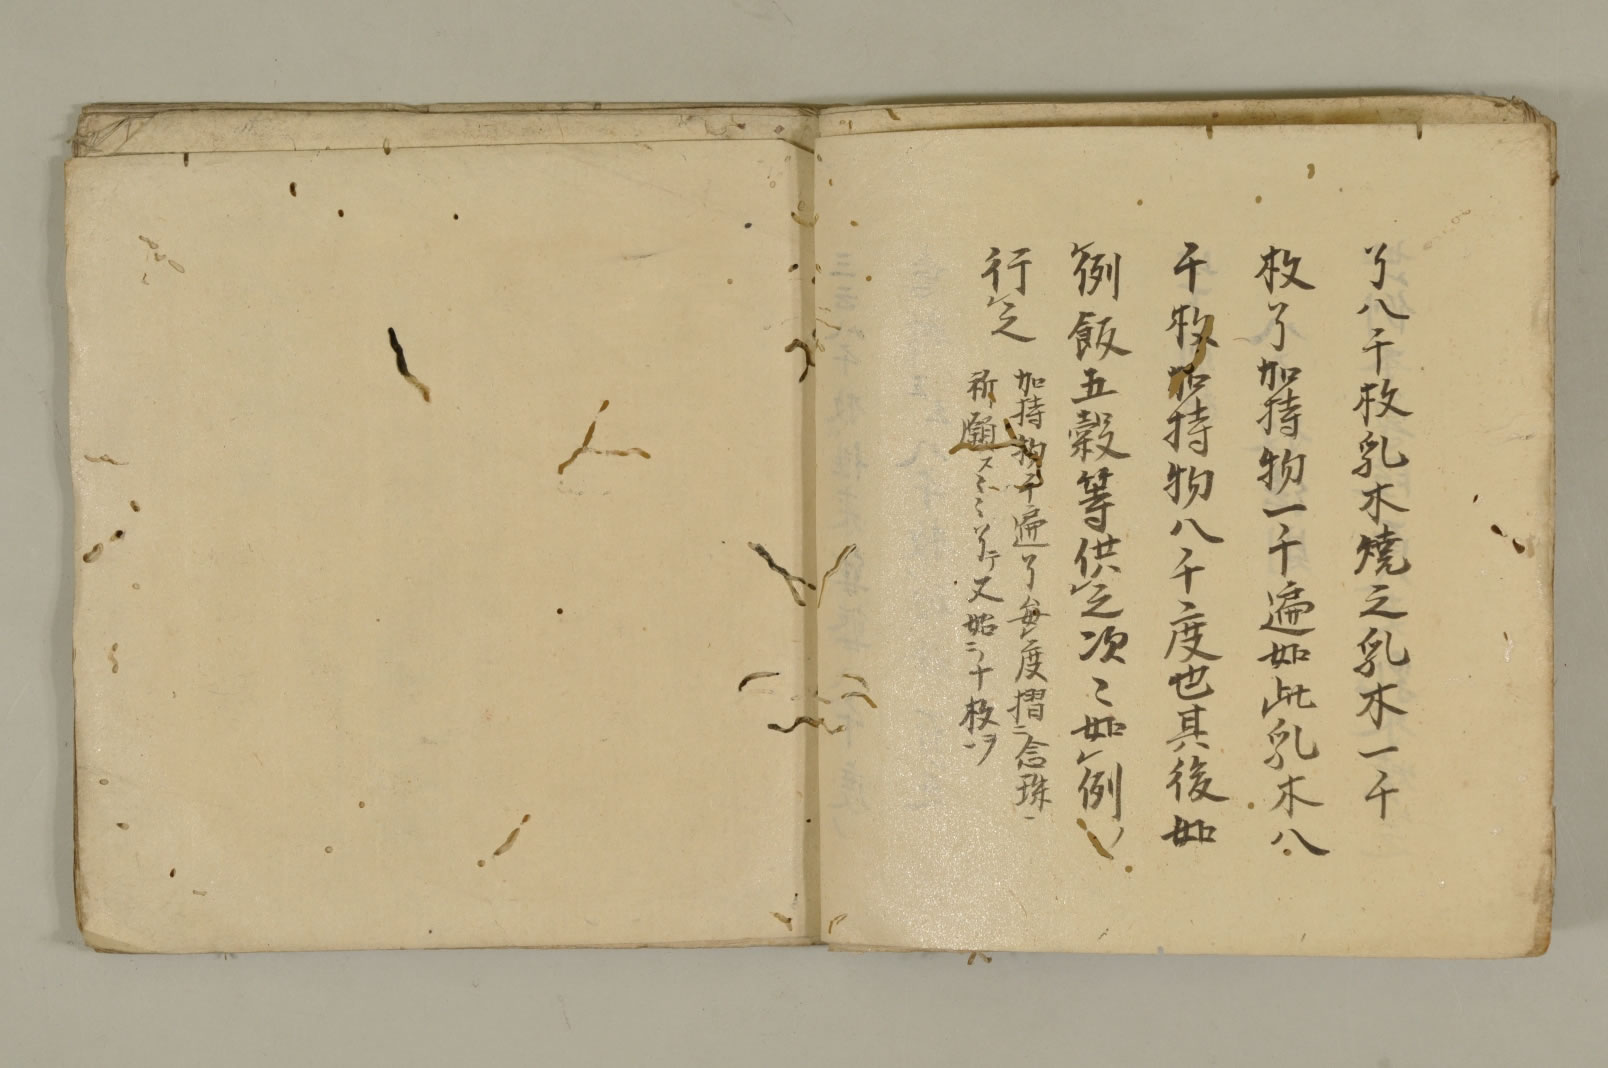 了八千枚乳木燒之乳木一千
枚了加持物一千遍如此乳木八
千枚加持物八千度也其後如
例飯五穀等供之次〻如例
行之
加持物千遍了每度摺念珠
祈願 又始千枚ヲ